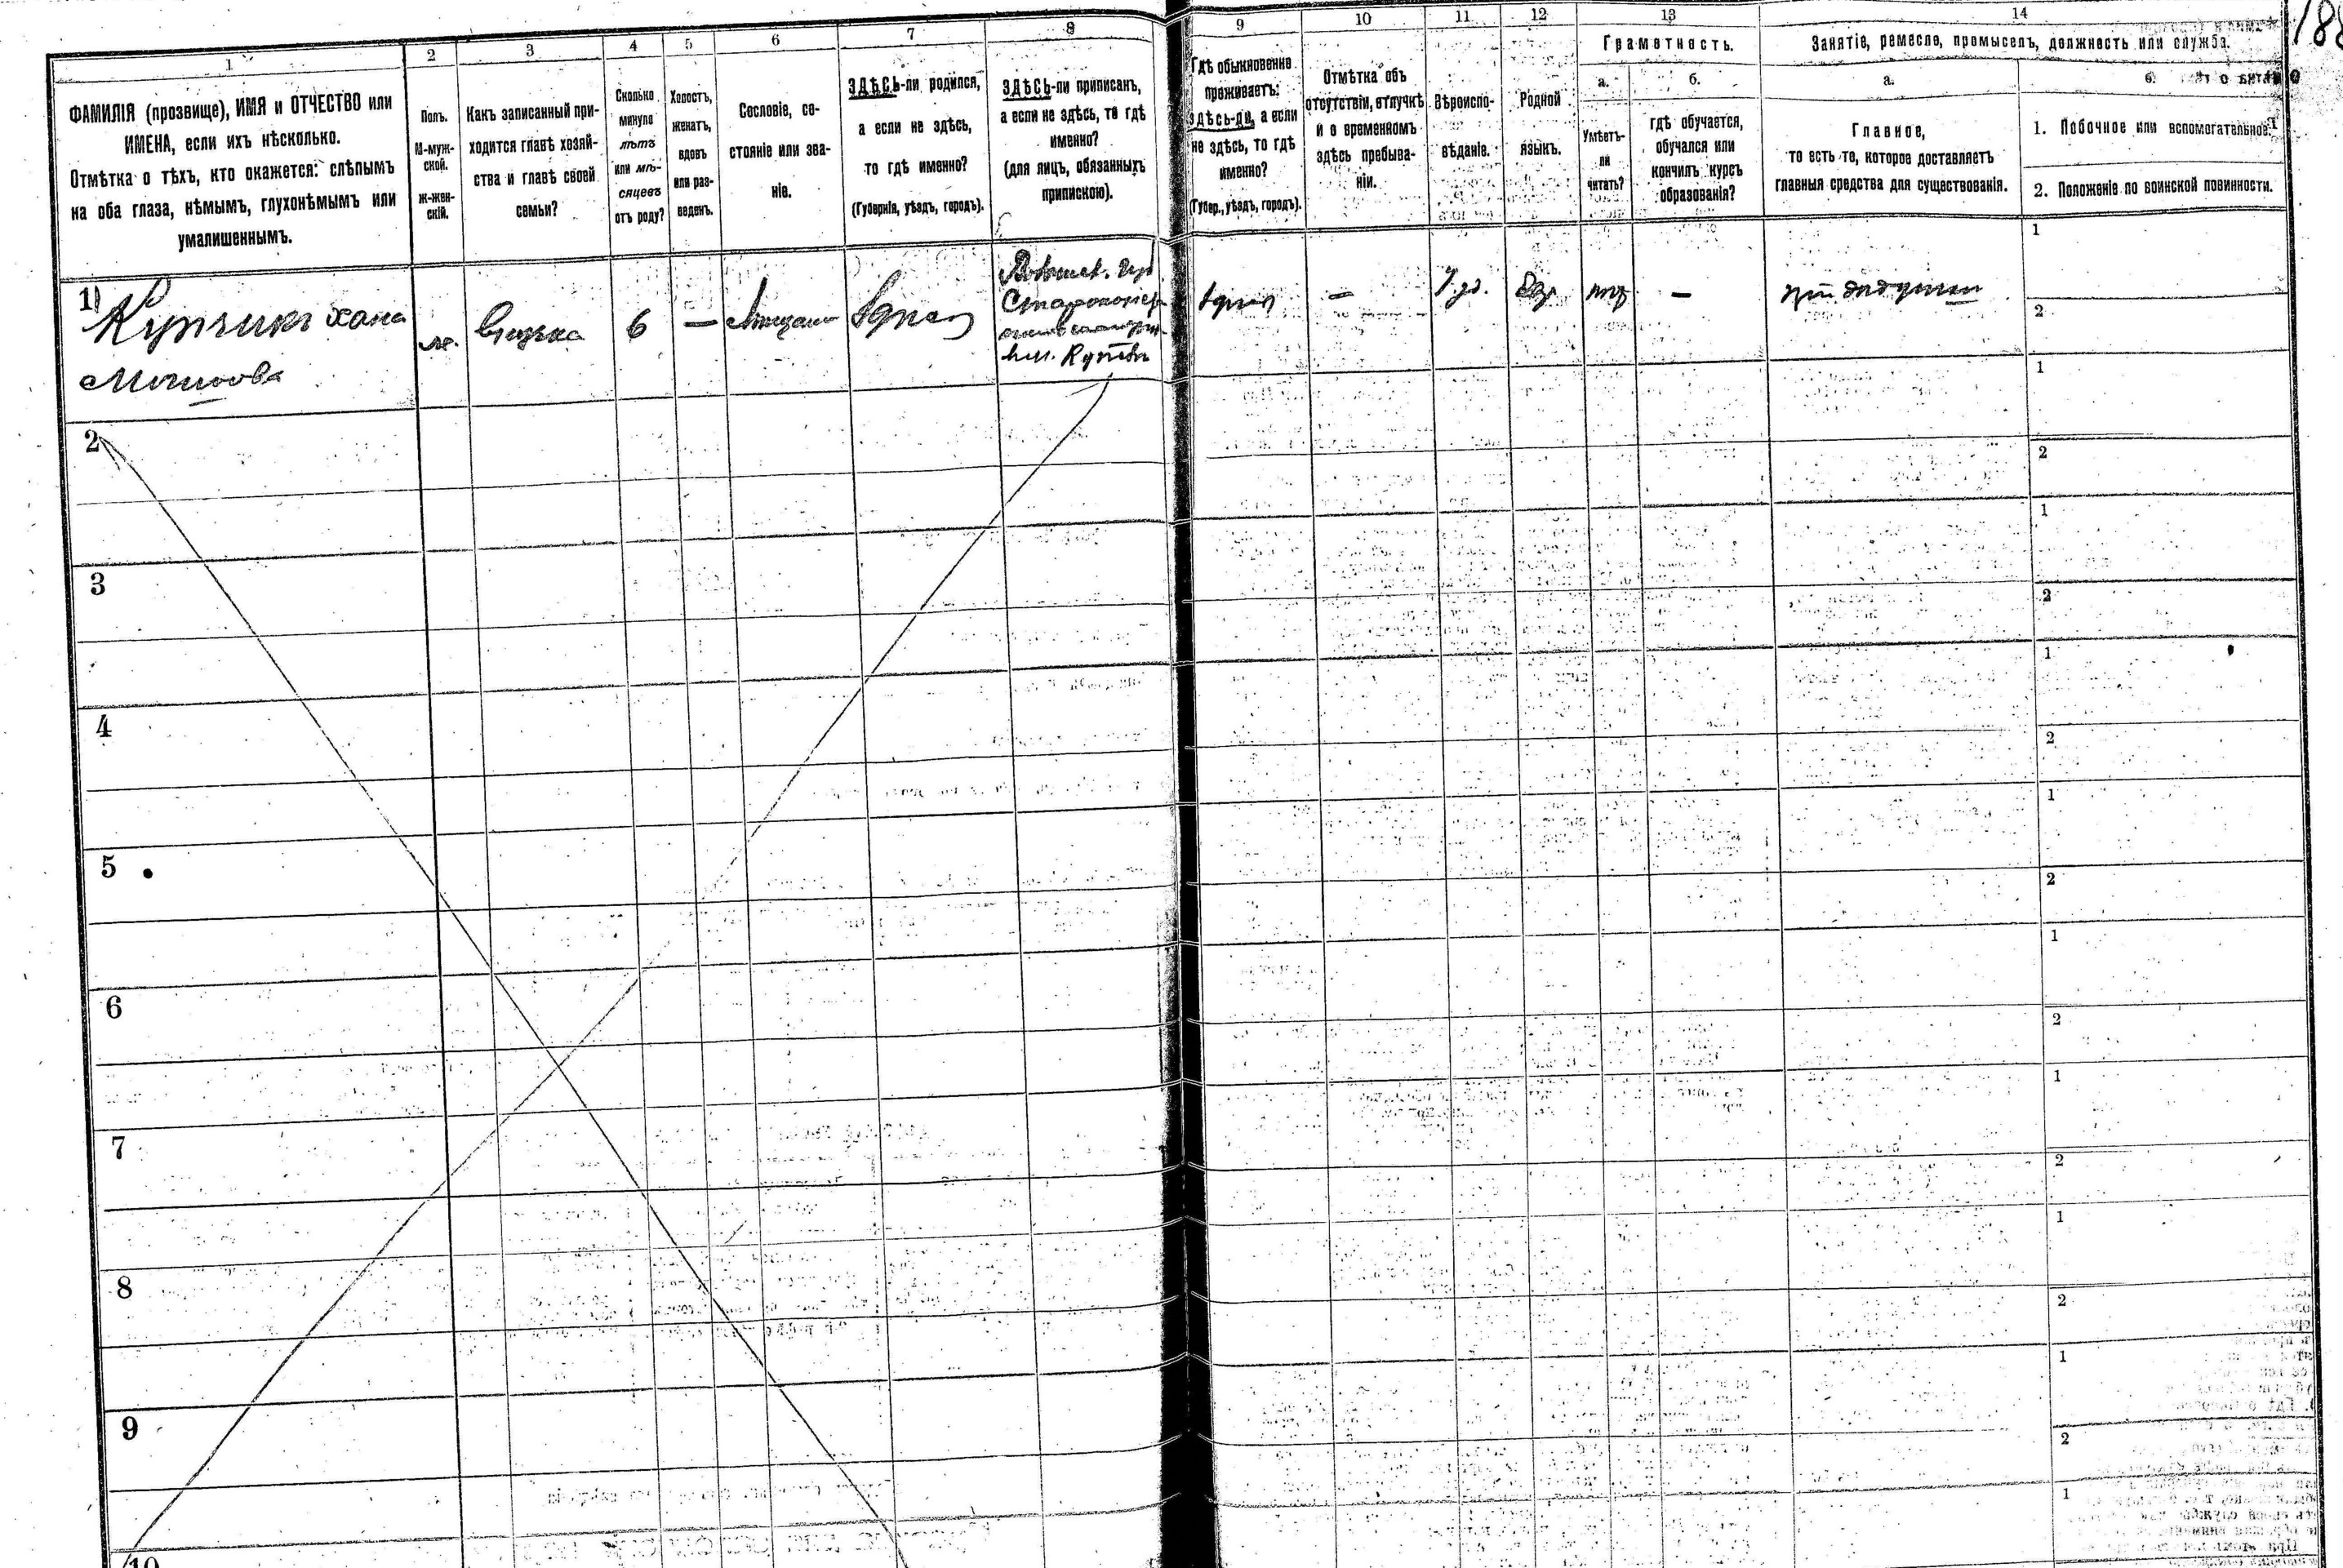 188
1
ФАМИЛІЯ (прозвище), ИМЯ и ОТЧЕСТВО или
ИМЕНА, если ихъ нѣсколько.
Отмѣтка о тѣхъ, кто окажется: слѣпымъ
на оба глаза, нѣмымъ, глухонѣмымъ или
умалишеннымъ.
2
Полъ.
М-муж-
ской.
Ж-жен-
скій.
3
Какъ записанный при-
ходится главѣ хозяй-
ства и главѣ своей
семьи?
4
Сколько
минуло
лѣтъ
или мѣ-
сяцевъ
отъ роду?
5
Холостъ,
женатъ,
вдовъ
или раз-
веденъ.
6
Сословіе, со-
стояніе или зва-
ніе.
7
ЗДѢСЬ-ли родился,
а если не здѣсь,
то гдѣ именно?
(Губернія, уѣздъ, городъ).
8
ЗДѢСЬ-ли приписанъ,
а если не здѣсь, то гдѣ
именно?
(для лицъ, обязанныхъ
припискою).
9
Гдѣ обыкновенно
проживаетъ:
здѣсь-ли, а если
не здѣсь, то гдѣ
именно?
(Губер., уѣздъ, городъ).
10
Отмѣтка объ
отсутствіи, отлучкѣ
и о временномъ
здѣсь пребыва-
ніи.
11
Вѣроиспо-
вѣданіе.
12
Родной
языкъ.
13
Грамотность.
а.
Умѣетъ-
ли
читать?
б.
гдѣ обучается,
обучался или
кончилъ курсъ
образованія?
14
Занятіе, ремесло, промыселъ, должность или служба.
а.
Главное,
то есть то, которое доставляетъ
главныя средства для существованія.
б.
1. Побочное или вспомогательное.
2. Положеніе по воинской повинности.
1
Купчикъ Хана
Мошкова
ж.
Внучка
6
—
Здѣсь
Волынск. губ.
Староконст.
—
Іуд.
Евр.
—
при дѣдушкѣ
1
2
2
1
2
3
1
2
4
1
2
5
1
2
6
1
2
7
1
2
8
1
2
9
1
2
10
1